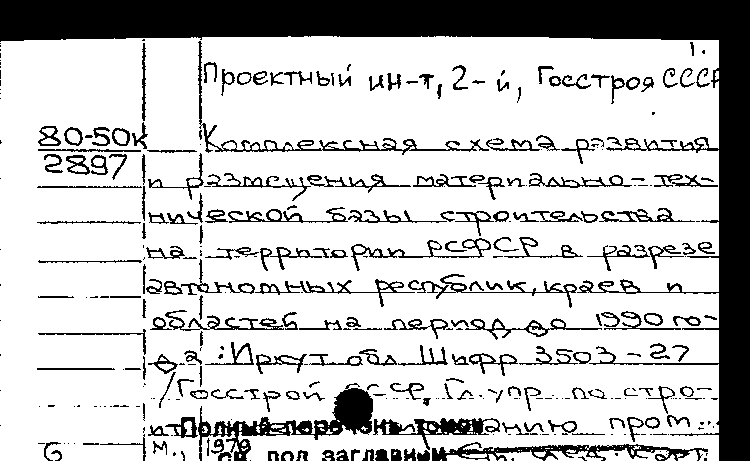 1.
Проектный ин-т, 2-й, Госстроя СССР
80-50к
2897
Комплексная схема развития
и размещения материально-тех-
нической базы строительства
на территории РСФСР в разрезе
автономных республик, краев и
областей на период до 1990 го-
да: Иркут обл Шифр 3503-27
/Госстрой СССР, Гл. упр. по стро-
пром.
Полный перечень томов
см. под заглавием
М., 1979
6